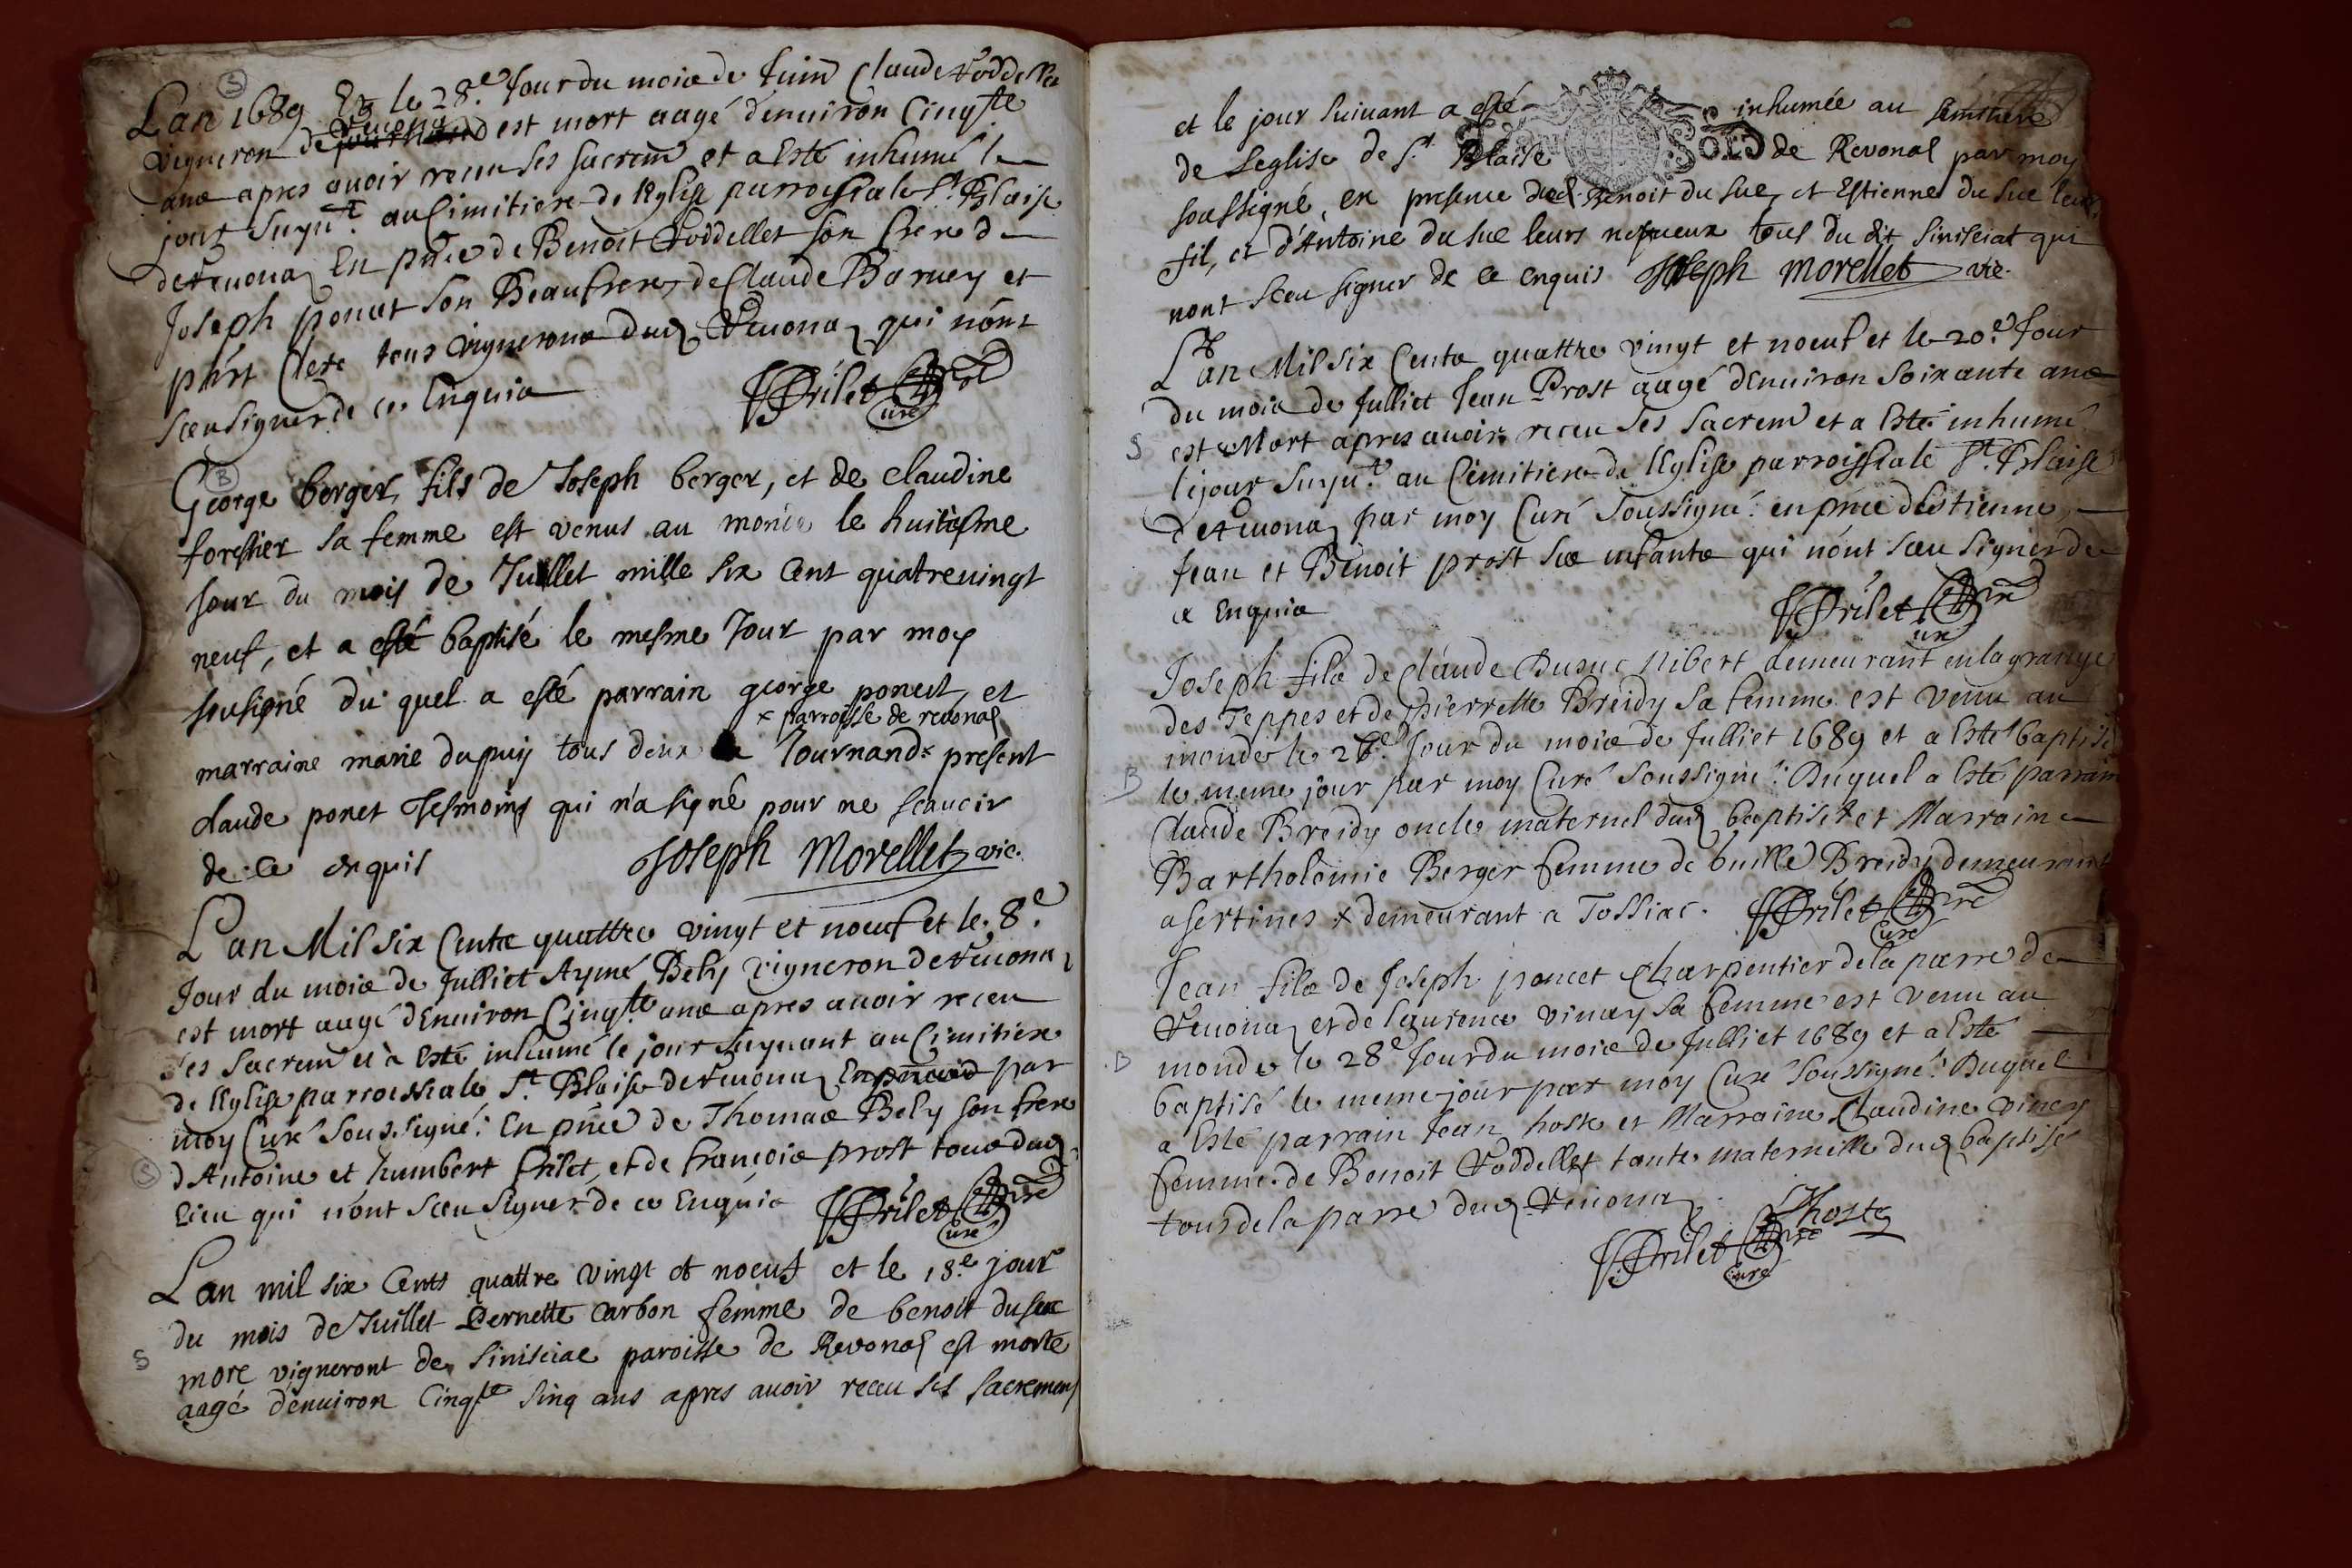 S
Lan 1689 Et le 28.e Jour du mois de Juin Claude Voddellet
Vigneron de Revona est mort aagé d'enuiron Cinq.te
ans apres auoir receu ses sacrem et a Esté inhumé le
jour Suyu.t au Cimitiere de l'Eglise parroissiale S.t Blaise
de Reuona En pñce de Benoit Voddellet son frere de
Joseph poncet son Beaufrere, de Claude Barney et
phirt Clere tous vignerons dud Reuona qui n'ont
sceu signer de ce Enquis
Frilet pre
Curé
B
George berger, fils de Joseph berger, et de claudine
forestier sa femme est venus au monde le huitiesme
Jour du mois de Juillet mille six cent quatreuingt
neuf, et a esté baptisé le mesme Jour par moy
sousigné du quel a esté parrain george poncet, et
x parroisse de revonas
marraine marie dupuy tous deux de Tournand x present
claude poncet tesmoins qui n'a signé pour ne scauoir
de ce enquis Joseph Morellet vic.
L'an Mil six Cents quattre vingt et noeuf et le 8.e
Jour du mois de Julliet Aymé Bely vigneron de Reuona
est mort aagé d'Enuiron Cinq.te ans apres auoir receu
ses Sacrem et à Esté inhumé le jour Suyuant au Cimitiere
de l'Eglise parroissiale S.t Blaise de Reuona par
moy Curé Soussigné: En pñce de Thomas Bely son frere
S
d'Antoine et humbert frilet, et de françois prost tous dud
Lieu qui n'ont sceu signer de ce Enquis Frilet pre
Curé
Lan mil six cents quattre vingt et noeuf et le 18.e jour
du mois de Juillet Pernette carbon femme de benoit du sue
S
more vigneront de Sinisciat paroisse de Revonas est morte
aagé d'enuiron Cinq.te sinq ans apres auoir receu ses sacremens
et le jour suiuant a esté inhumée au semitiere
de Leglise de S.t Blaise de Revonas par moy
soussigné, en presence dud. Benoit du sue, et Estienne du sue leur
fil, et d'Antoine du sue leurs nepueux tous du dit Sinisciat qui
nont sceu signer de ce enquis Joseph Morellet vic.
L'an Mil six Cents quattre vingt et noeuf et le 20.e Jour
du mois de Julliet Jean Prost aagé d'Enuiron soixante ans
S
est Mort apres auoir receu ses Sacrem et a Esté inhumé
le jour Suyu.t au Cimitiere de l'Eglise parroissiale S.t Blaise
de Reuona par moy Curé Soussigné: en pñce d'Estienne
Jean et Benoit prost ses enfants qui n'ont sceu signer de
ce Enquis Frilet pre
Curé
Joseph fils de Claude Dusuc Nibert demeurant en la grange
des Teppes et de Pierrette Breidy sa femme est venu au
monde le 26.e Jour du mois de Julliet 1689 et a Esté baptisé
B
le meme jour par moy Curé Soussigné: Duquel a Esté parrain
Claude Breidy oncle maternel dud baptisé x et Marraine
Bartholemie Berger femme de Breidy demeurant
a sertines x demeurant a Tossiac. Frilet pre
Curé
Jean fils de Joseph poncet charpentier de la parre de
Reuona et de Laurence vinay sa femme est venu au
B
monde le 28.e Jour du mois de Julliet 1689 et a Esté
baptisé le meme jour par moy Curé Soussigné: Duquel
a Esté parrain Jean hoste et Marraine Claudine viney
femme de Benoit Voddellet tante maternelle dud baptisé
tous de la parre dud Reuona. J hoste
Frilet pre
Curé